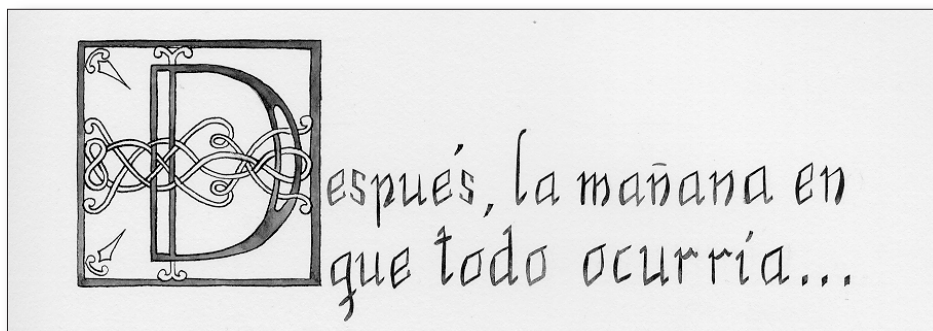 Después, la mañana en
que todo ocurría...